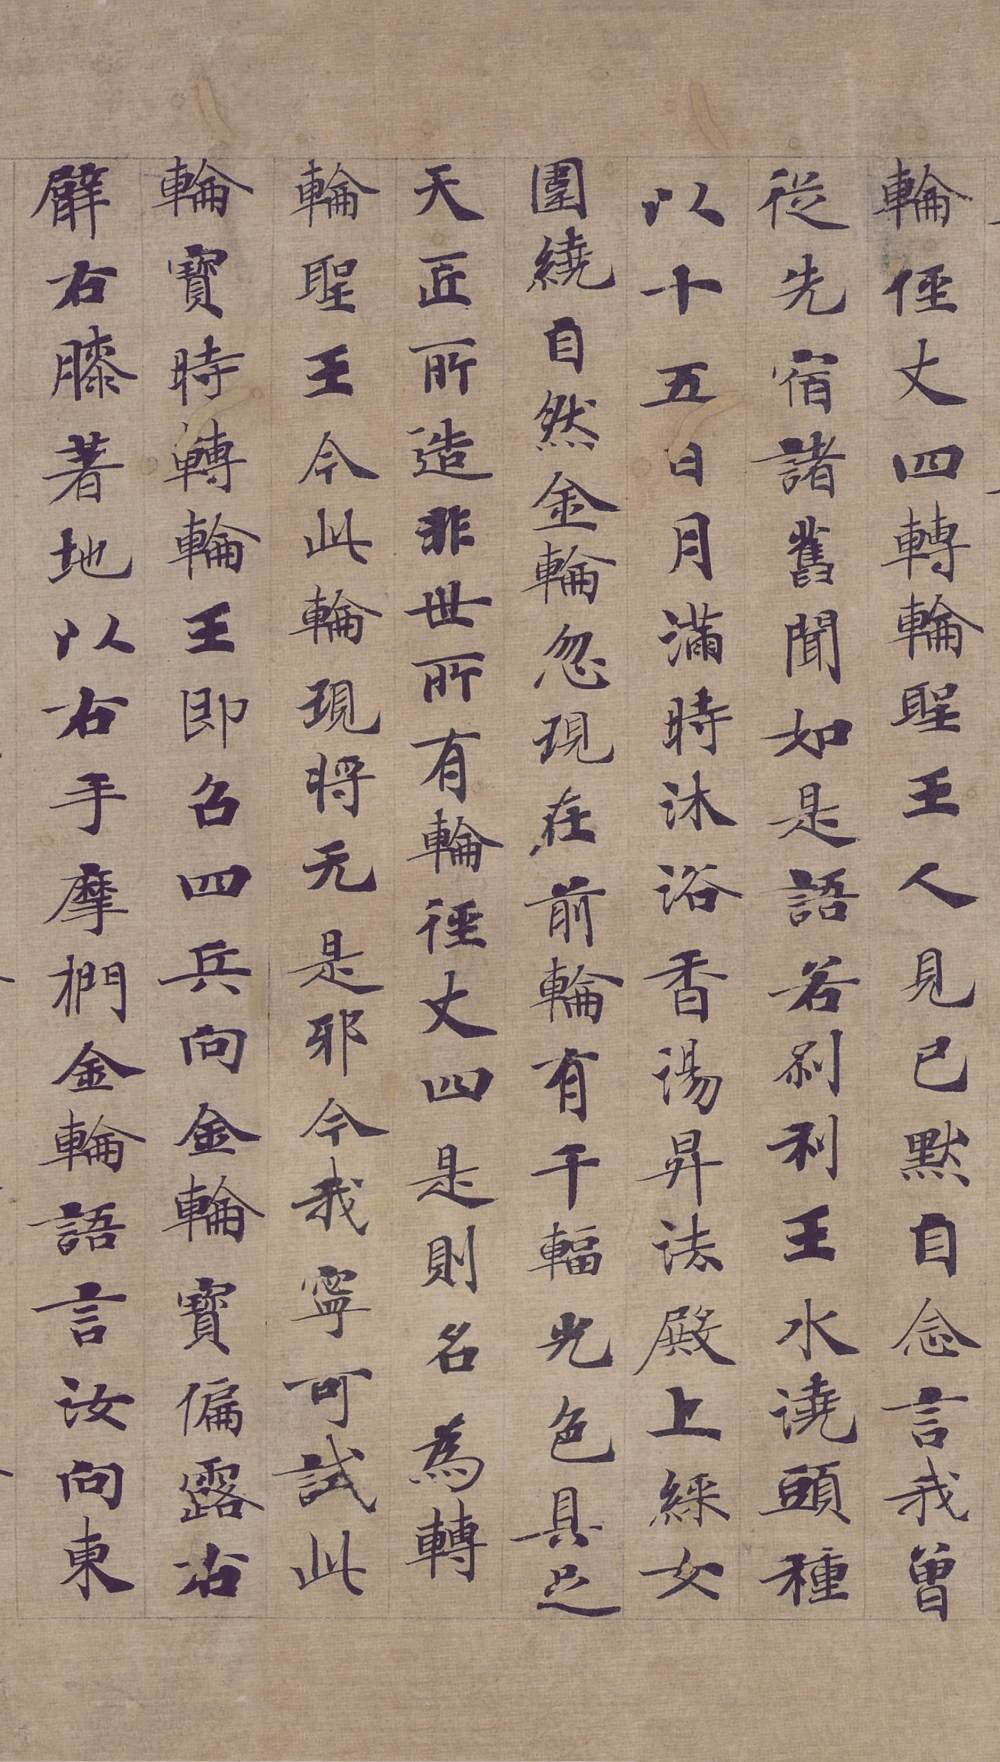 輪俓丈四轉輪聖王人見已默自念言我曾
從先宿諸舊聞如是語若剎利王水澆頭種
以十五日月滿時沐浴香湯昇法殿上綵女
圍繞自然金輪忽現在前輪有千輻光色具足
天匠所造非世所有輪徑丈四是則名為轉
輪聖王今此輪現將无是耶今我寧可試此
輪寶時轉輪王即召四兵向金輪寶偏露右
臂右膝著地以右手摩捫金輪語言汝向東